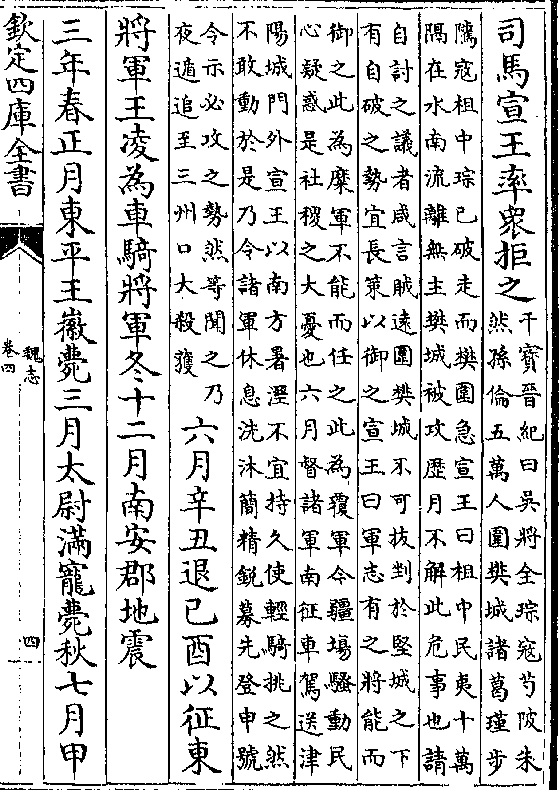 司馬宣王率衆拒之
干寶晉紀曰吳將全琮寇芍陂朱
然孫倫五萬人圍樊城諸葛瑾步
隲寇祖中琮已破走而樊圍急宣王曰祖中民夷十萬
隔在水南流離無主樊城被攻歷月不解此危事也請
自討之議者咸言賊遠圍樊城不可拔剉於堅城之下
有自破之勢宜長策以御之宣王曰軍志有之將能而
御之此為糜軍不能而任之此為覆軍今疆場騷動民
心疑惑是社稷之大憂也六月督諸軍南征車駕送津
陽城門外宣王以南方暑溼不宜持久使輕騎挑之然
不敢動於是乃令諸軍休息洗沐簡精鋭募先登申號
令示必攻之勢然等聞之乃
夜遁追至三州口大殺獲
六月辛丑退己酉以征東
將軍王凌為車騎將軍冬十二月南安郡地震
三年春正月東平王徽薨三月太尉滿寵薨秋七月甲
欽定四庫全書
魏志
卷四
四